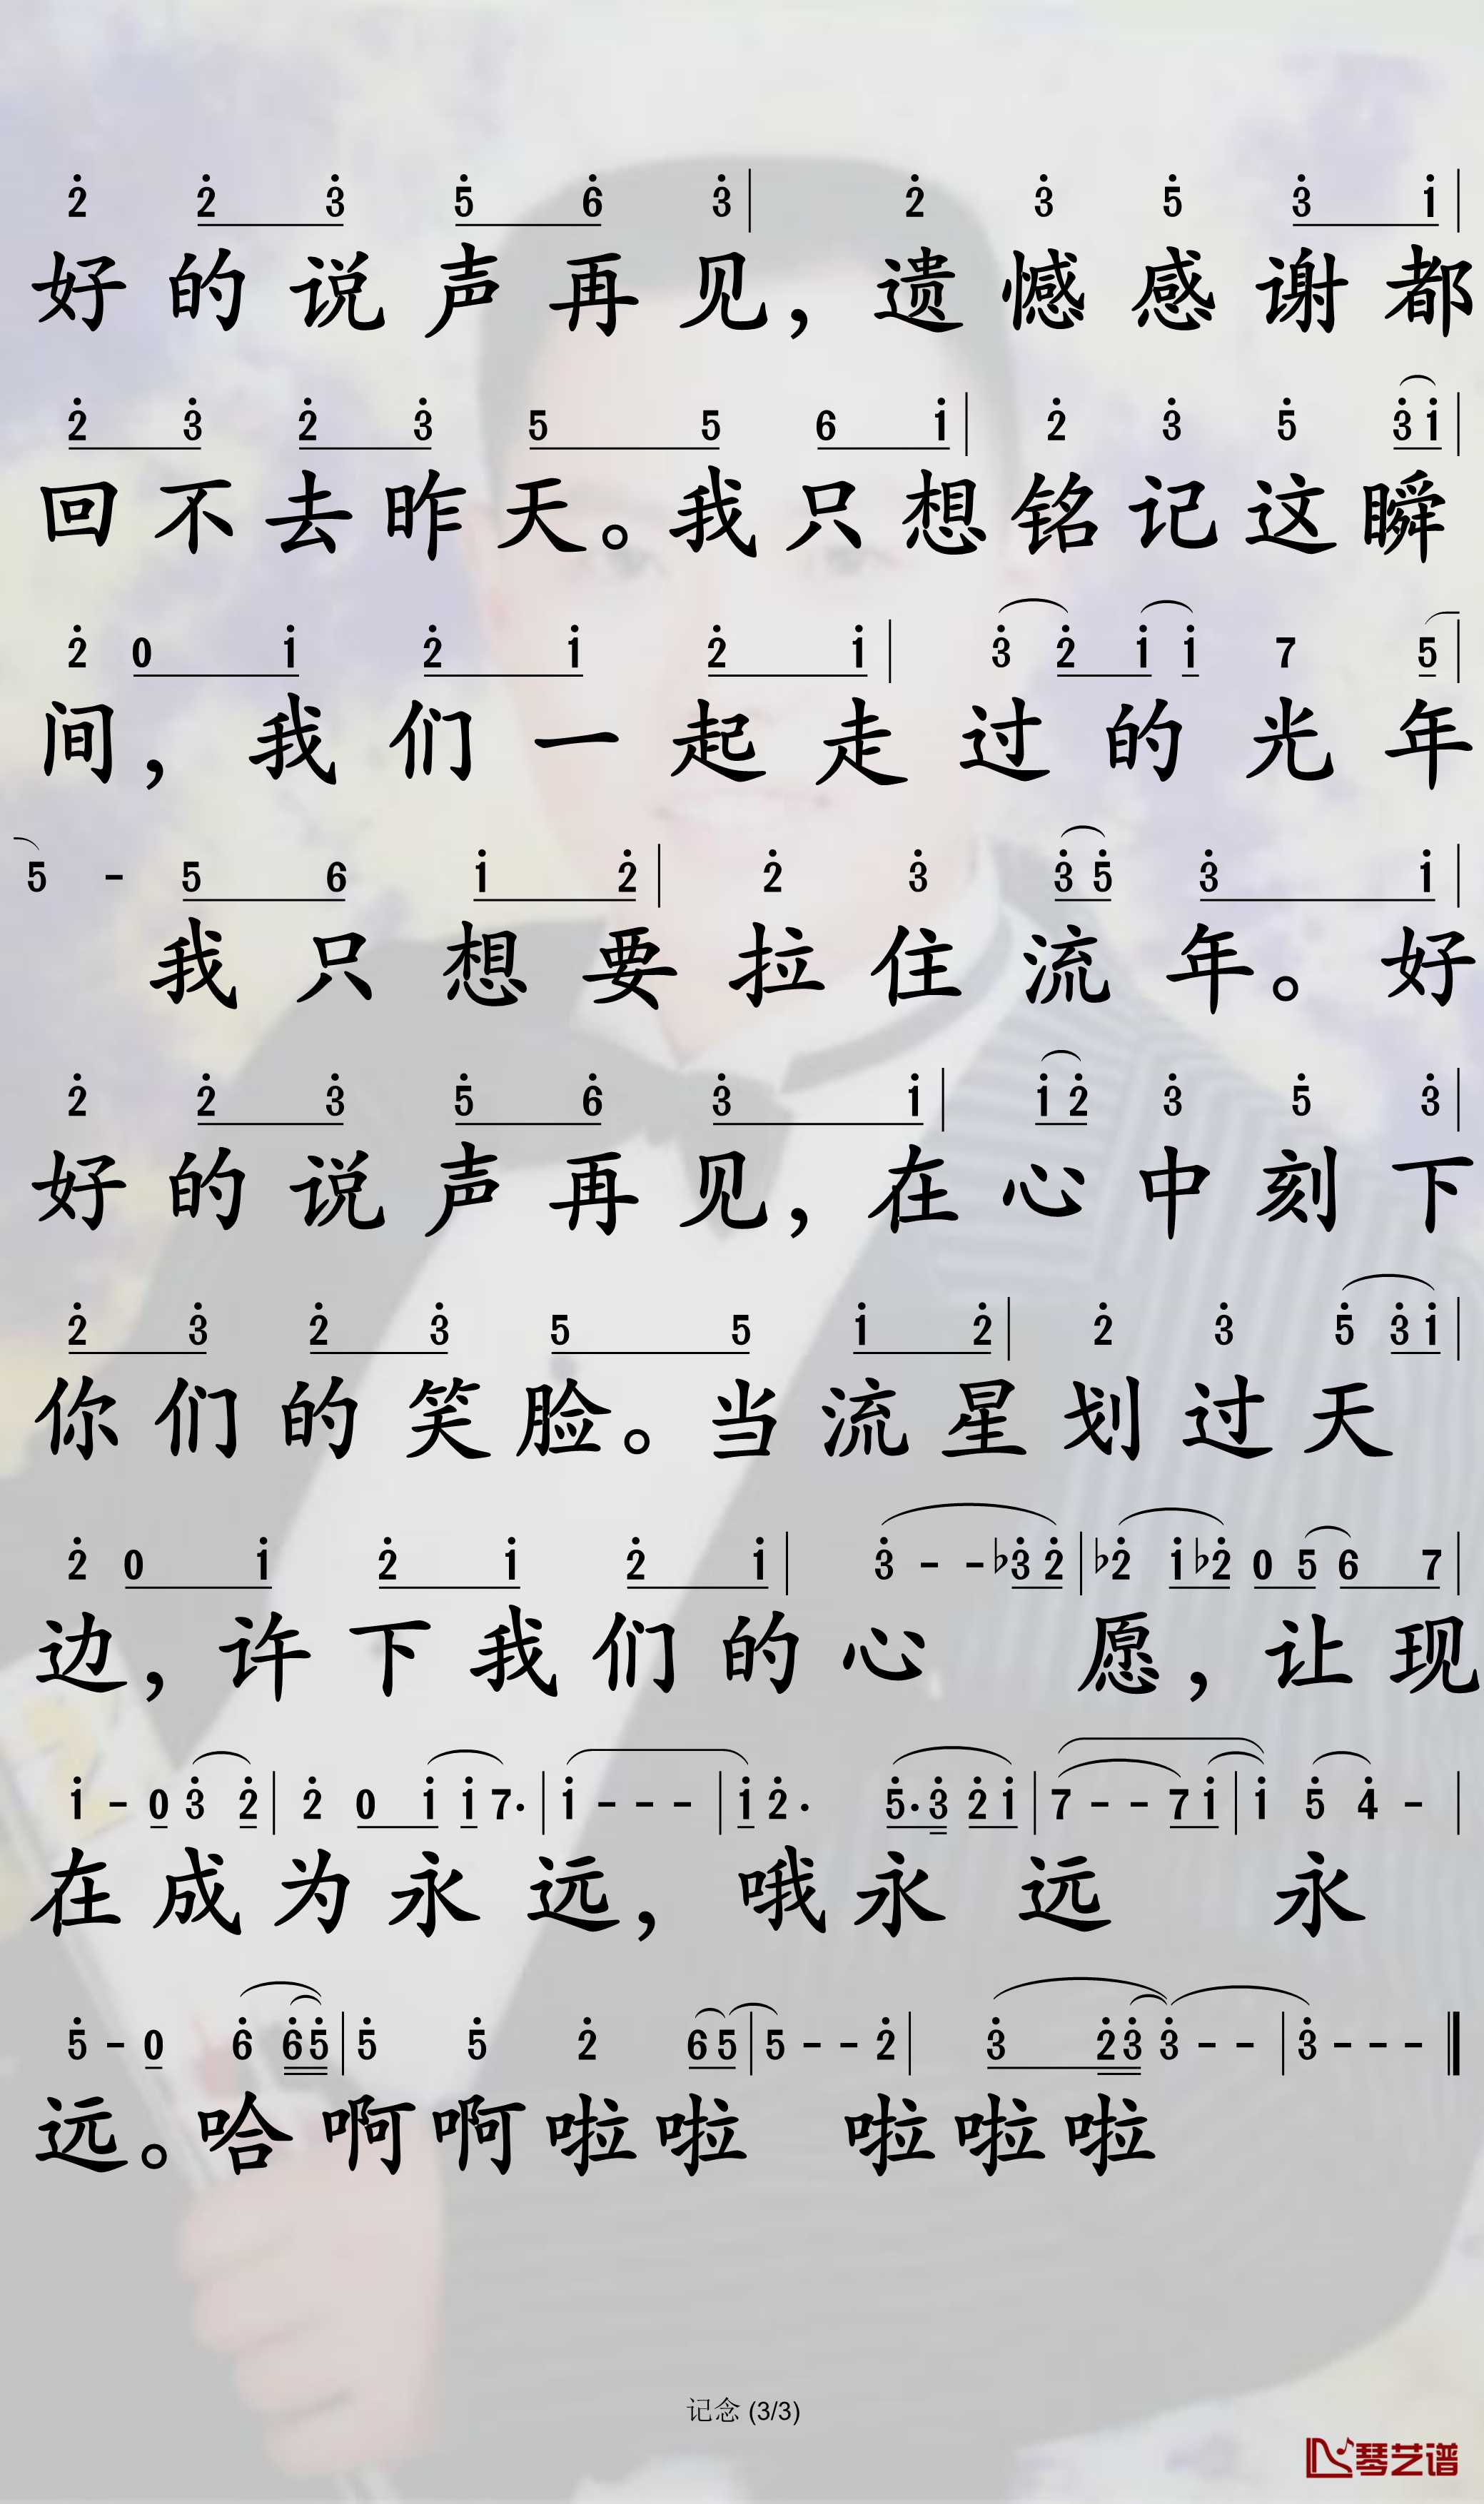 2̇ 2̇ 3̇ 5̇ 6̇ 3̇ | 2̇ 3̇ 5̇ 3̇ 1̇ |
好的说声再见，遗憾感谢都
2̇ 3̇ 2̇ 3̇ 5 5 6 1̇ | 2̇ 3̇ 5̇ 3̇ 1̇ |
回不去昨天。我只想铭记这瞬
2̇ 0 1̇ 2̇ 1̇ 2̇ 1̇ | 3̇ 2̇ 1̇ 1̇ 7 5 |
间，我们一起走过的光年
5 - 5 6 1̇ 2̇ | 2̇ 3̇ 3̇ 5̇ 3̇ 1̇ |
我只想要拉住流年。好
2̇ 2̇ 3̇ 5̇ 6̇ 3̇ 1̇ | 1̇ 2̇ 3̇ 5̇ 3̇ |
好的说声再见，在心中刻下
2̇ 3̇ 2̇ 3̇ 5 5 1̇ 2̇ | 2̇ 3̇ 5̇ 3̇ 1̇ |
你们的笑脸。当流星划过天
2̇ 0 1̇ 2̇ 1̇ 2̇ 1̇ | 3̇ - - ♭3̇ 2̇ | ♭2̇ 1̇ ♭2̇ 0 5 6 7 |
边，许下我们的心 愿，让现
1̇ - 0 3̇ 2̇ | 2̇ 0 1̇ 1̇ 7. | 1̇ - - - | 1̇ 2̇. 5̇. 3̇ 2̇ 1̇ | 7 - - 7 1̇ | 1̇ 5̇ 4̇ - |
在成为永远，哦永远 永
5̇ - 0 6̇ 6̇ 5̇ | 5̇ 5̇ 2̇ 6 5 | 5 - - 2̇ | 3̇ 2̇ 3̇ 3̇ - - | 3̇ - - - ‖
远。哈啊啊啦啦 啦啦啦
记念 (3/3)
琴艺谱